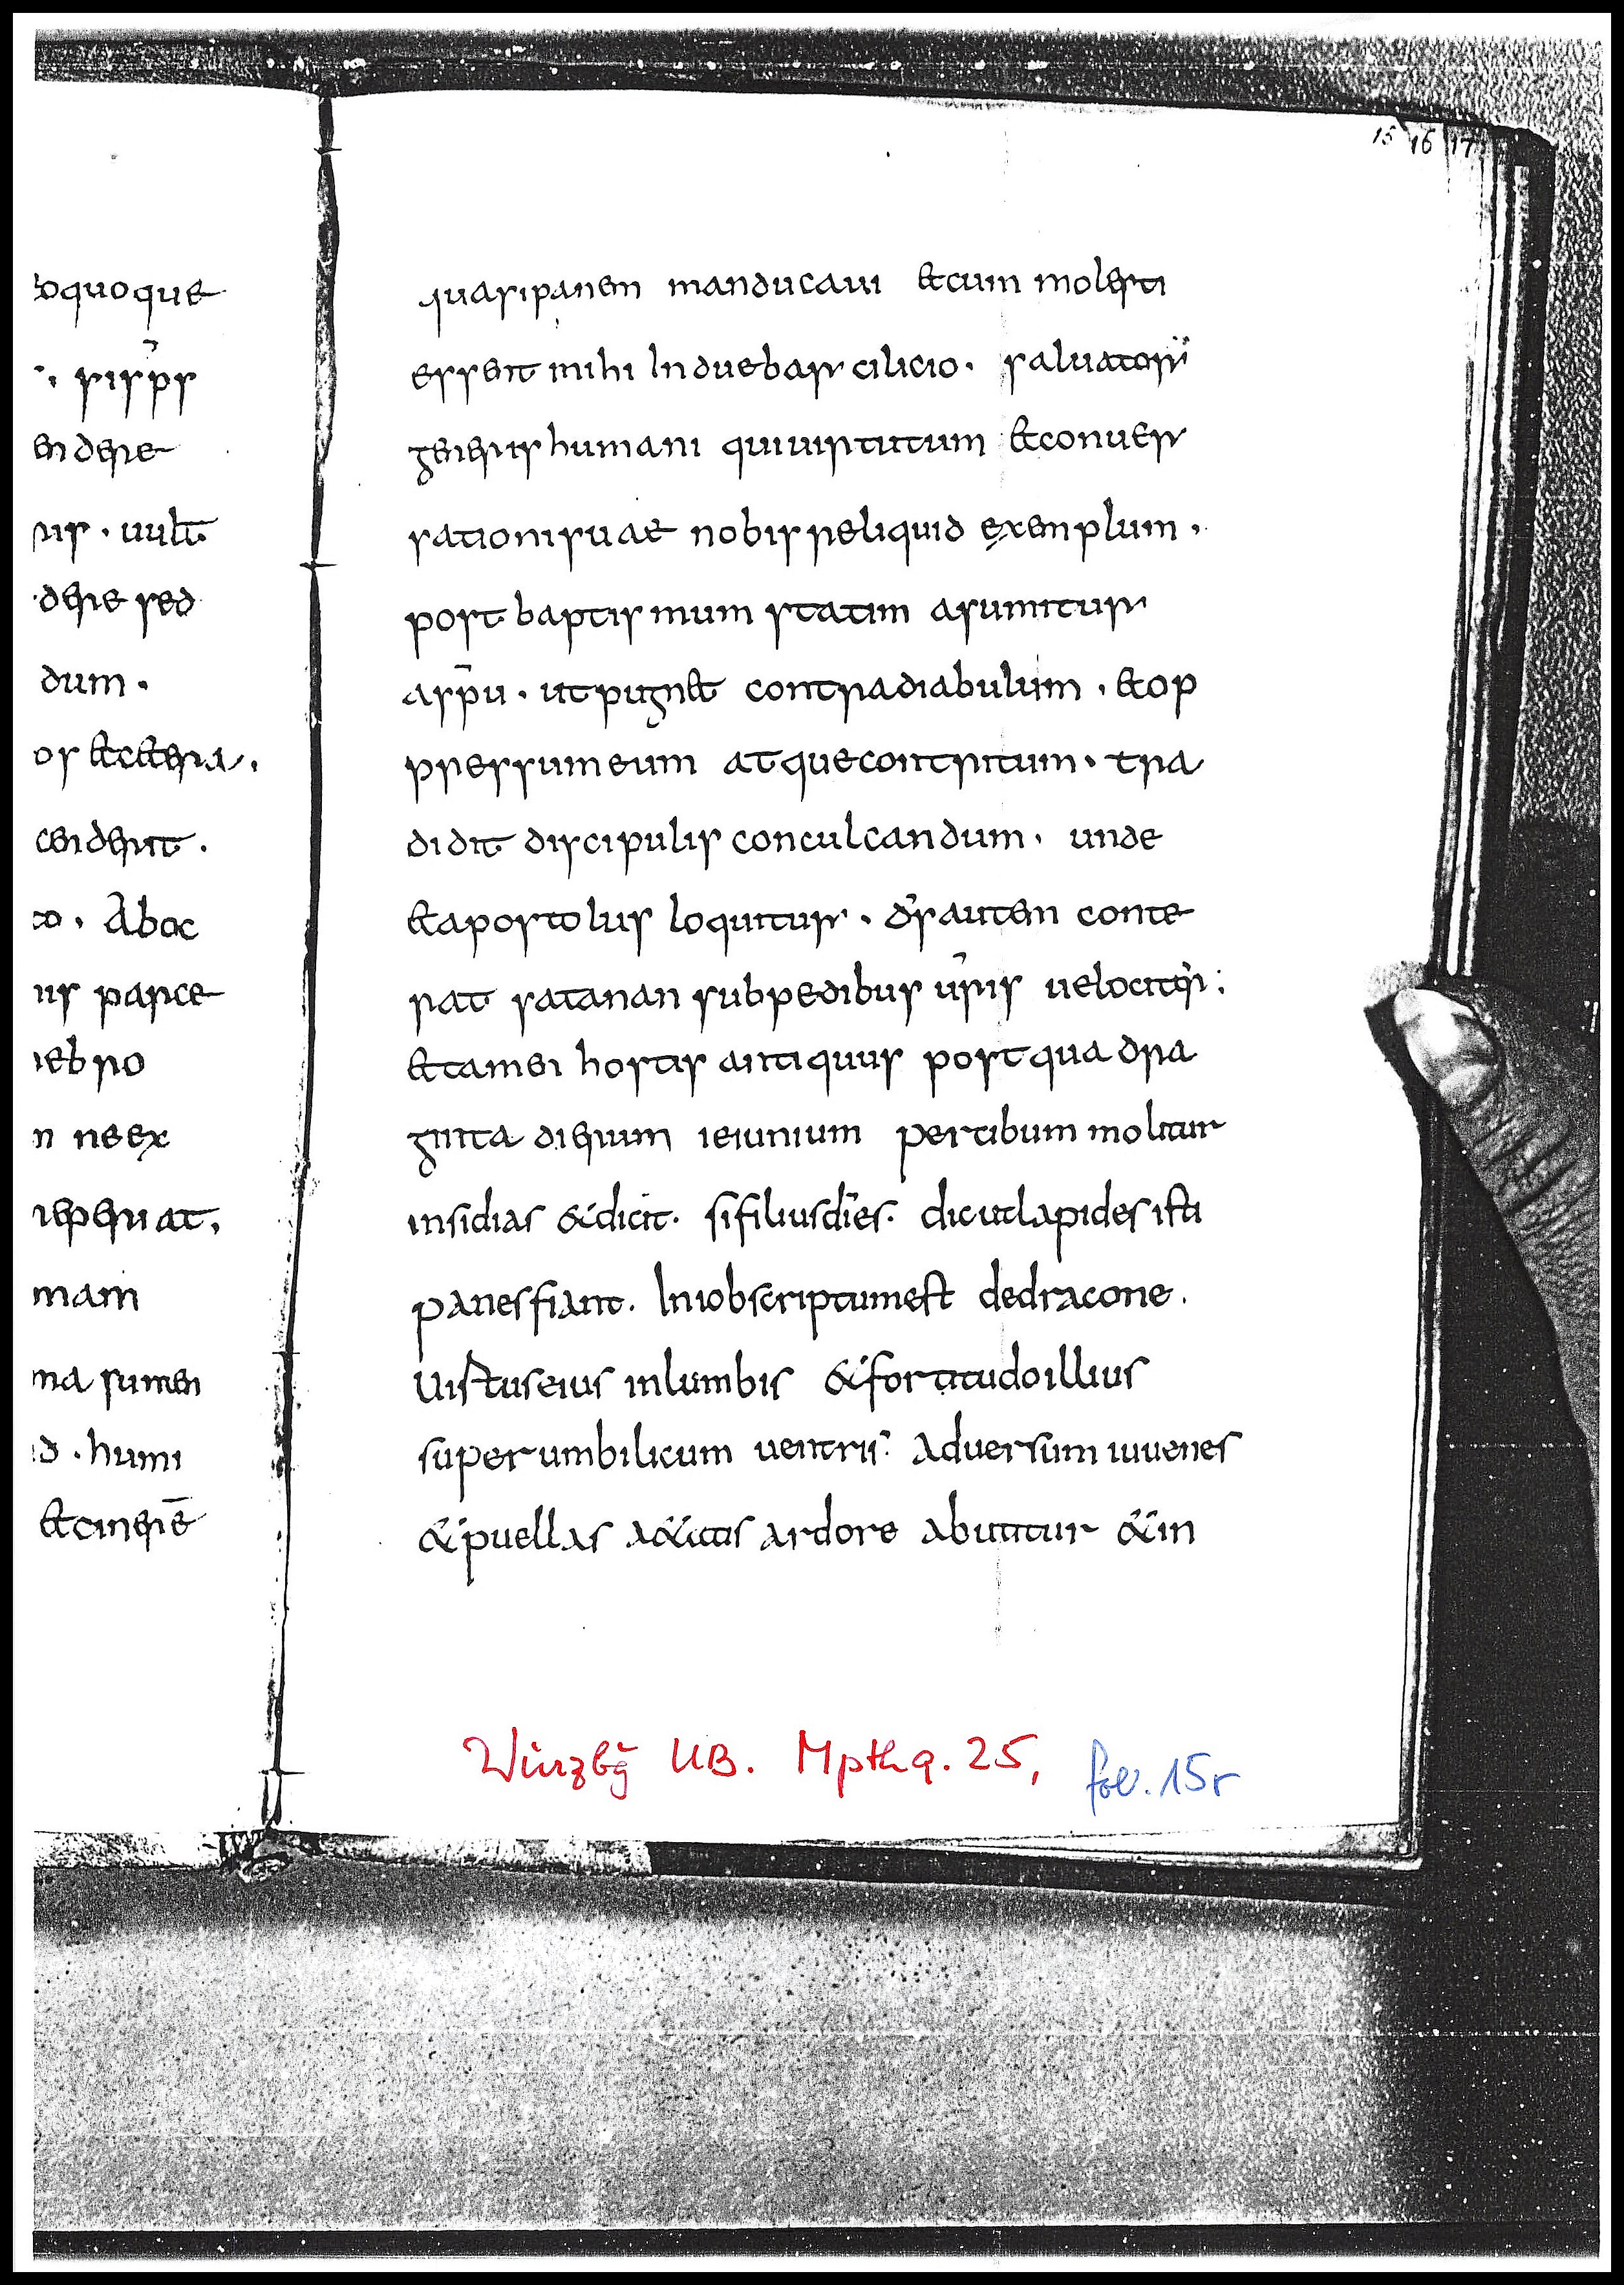 15 16 17
oquoque
· sisps
endere
us · uult
dere sed
dum ·
os etcetera ·
cenderit ·
co · Aboc
us parce
iebro
n neex
reperiat,
mam
ma sumen
d · humi
etcinerē
quasipanem manducaui etcum molesti
essent mihi Induebar cilicio · saluator
generis humani quiuirtutum etconuer
sationisuae nobis reliquid exemplum ·
post baptismum statim asumitur
aspū · utpugnet contradiabulum · etop
pressumeum atquecontritum · tra
didit discipulis conculcandum · unde
etapostolus loquitur · ds autem conte
rat satanan subpedibus uris uelociter ;
ettamen hostis antiquus postquadra
ginta dierum ieiunium percibum molitur
insidias &dicit · sifiliusdies · dicutlapidesisti
panesfiant · Iniobscriptumest dedracone ·
Uistuseius inlumbis &fortitudoillius
superumbilicum uentris Aduersum iuuenes
&puellas a&atis ardore abutitur &in
Würzbg UB. Mpthq. 25, fol. 15r